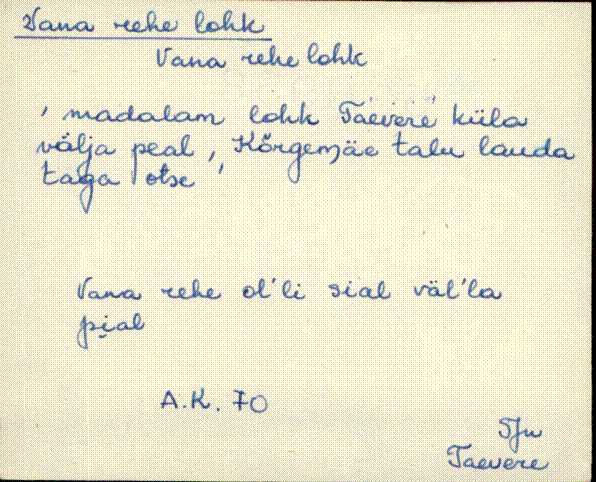 Vana rehe lohk
Vana rehe lohk
' madalam lohk Taevere küla
välja peal, Kõrgemäe talu lauda
taga otse '
Vana rehe ol'li sial väl'la
pi̬al
A.K. 70
SJn
Taevere